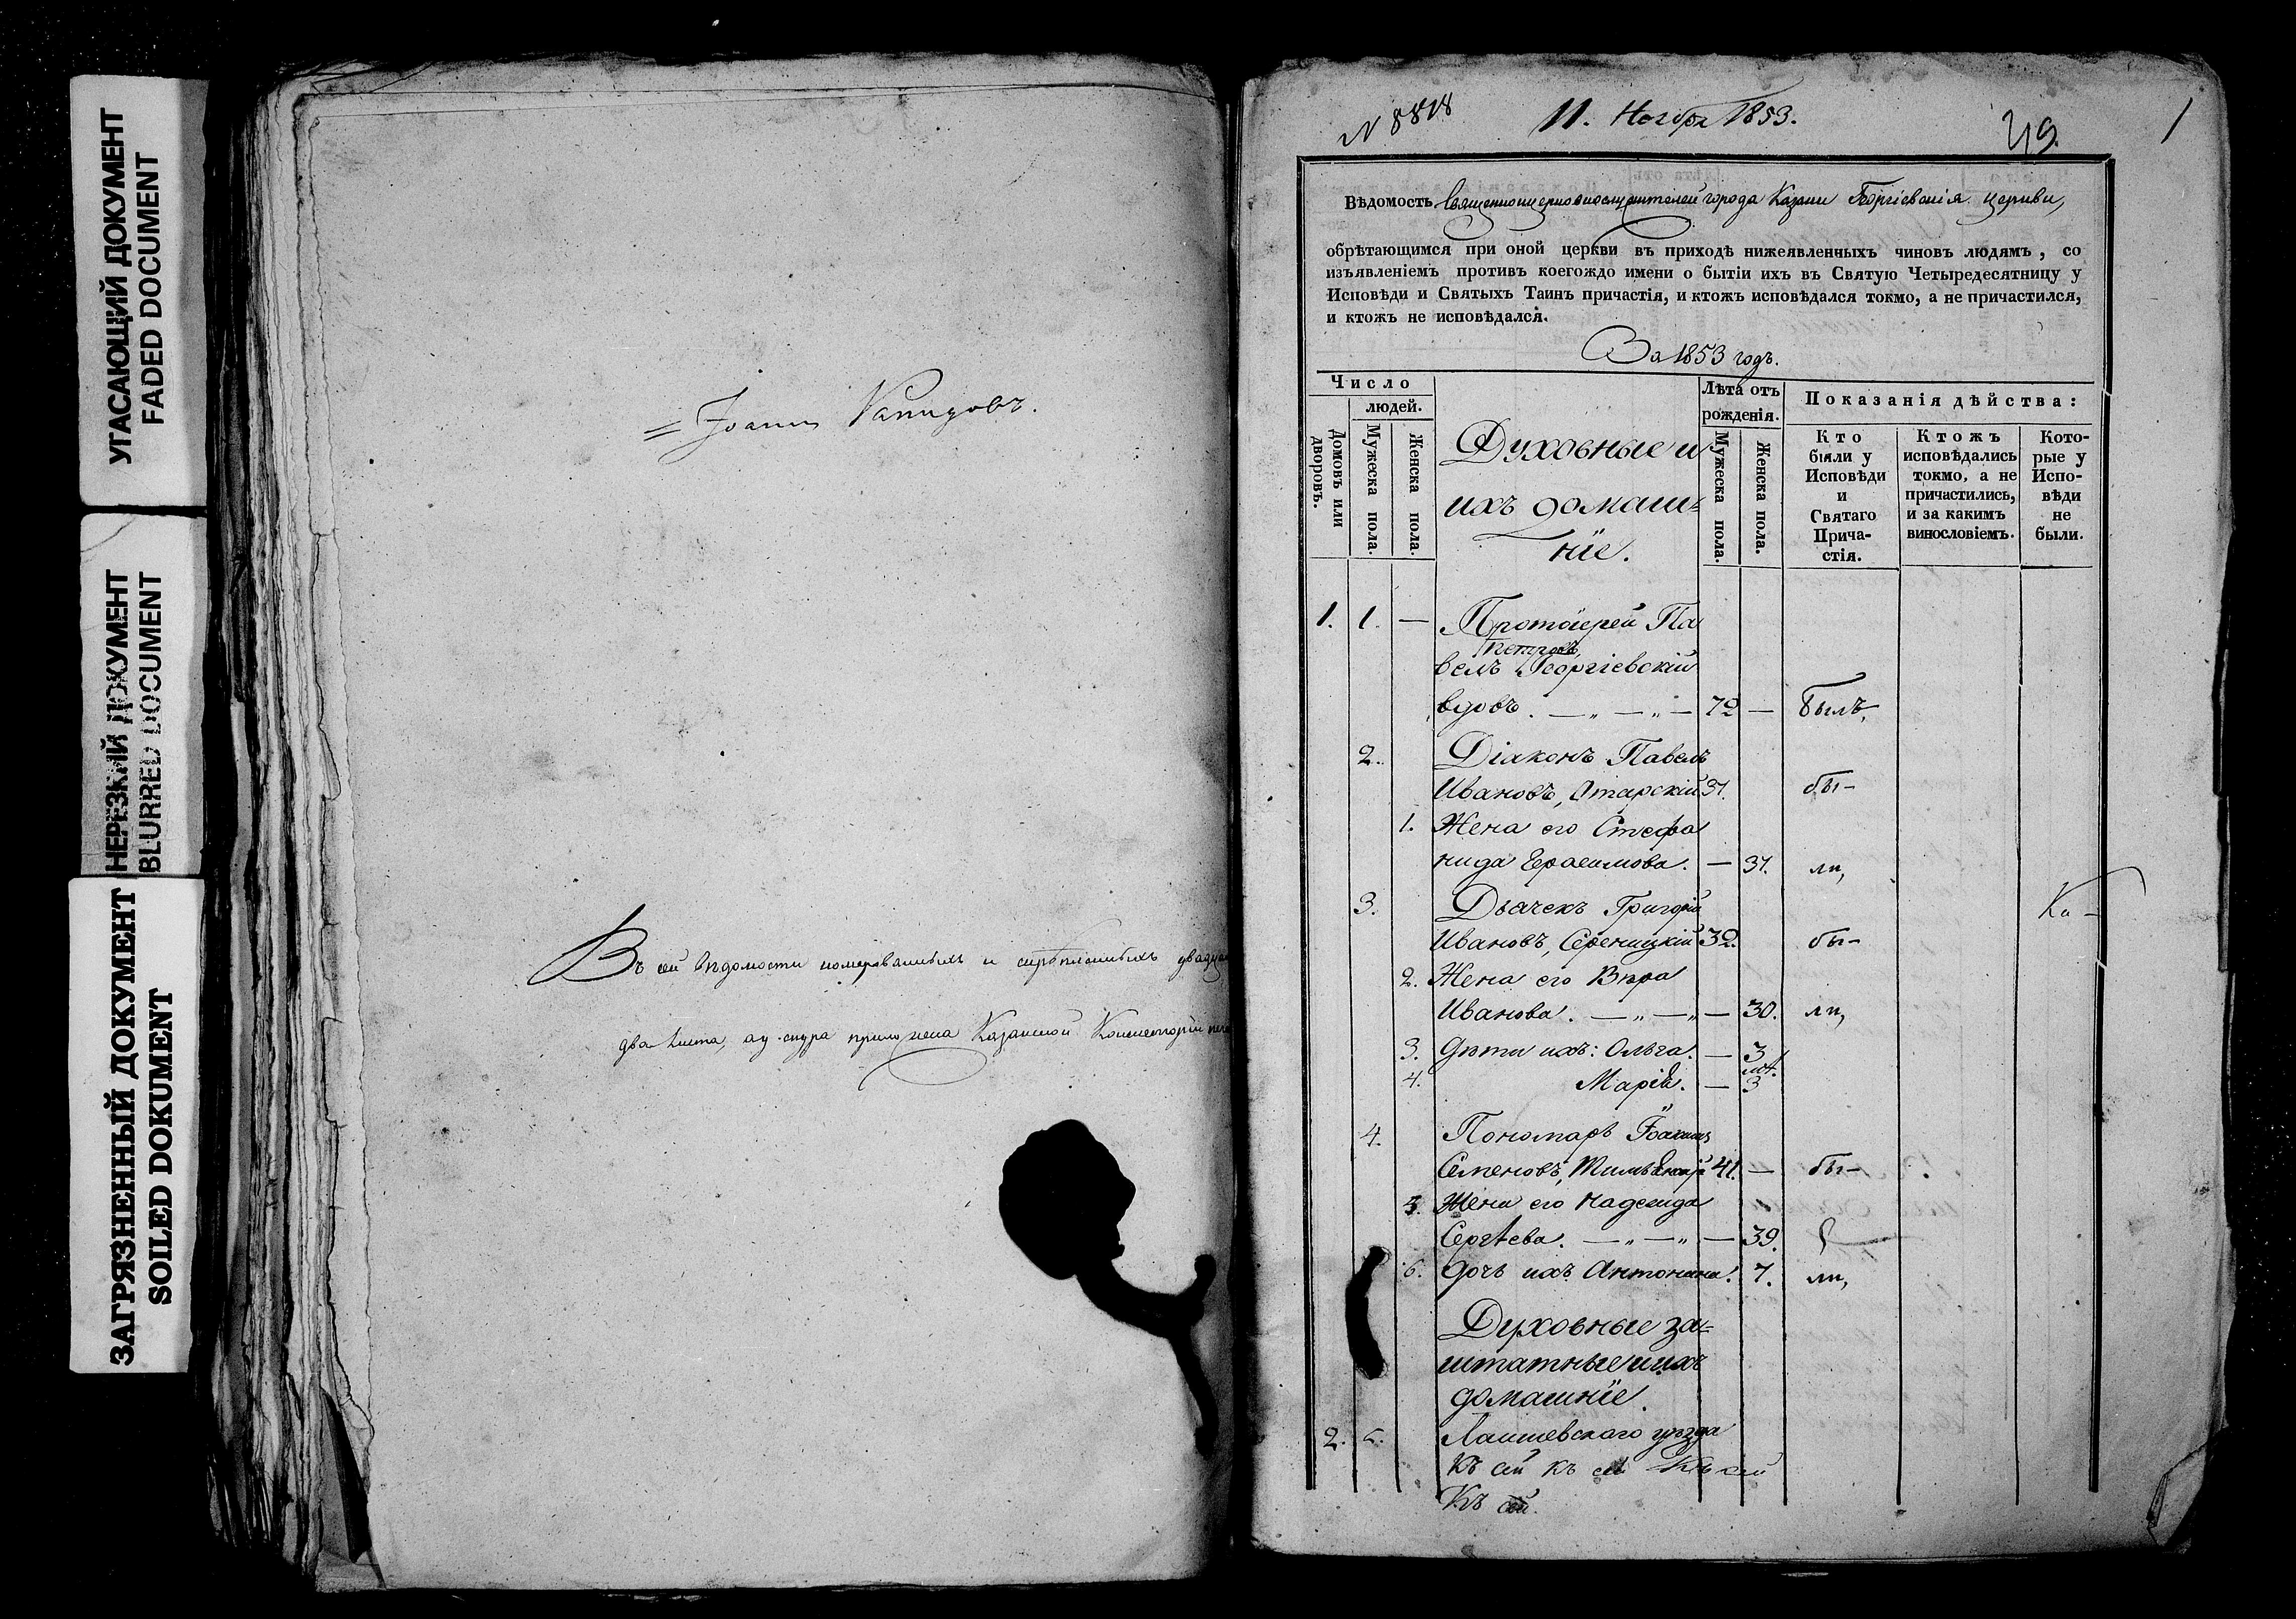 УГАСАЮЩИЙ ДОКУМЕНТ
FADED DOCUMENT
НЕРЕЗКИЙ ДОКУМЕНТ
BLURRED DOCUMENT
ЗАГРЯЗНЕННЫЙ ДОКУМЕНТ
SOILED DOKUMENT
Въ сей Ведомости номерованныхъ и скрѣпленныхъ
два листа, приложена Казанской Консисторіи
N 8818
11. Ноября 1853.
49.
1
Вѣдомость Священноцерковнослужителей города Казани Георгіевскія церкви,
обрѣтающимся при оной церкви въ приходѣ нижеявленныхъ чиновъ людямъ, со
изъявленіемъ противъ коегождо имени о бытіи ихъ въ Святую Четыредесятницу у
Исповѣди и Святыхъ Таинъ причастія, и ктожъ исповѣдался токмо, а не причастился,
и ктожъ не исповѣдался.
За 1853 годъ.
Число
людей.
Домовъ или дворовъ.
Мужеска пола.
Женска пола.
Духовные и
ихъ домаш=
ніе.
Лѣта отъ
рожденія.
Мужеска пола.
Женска пола.
Показанія дѣйства:
Кто
были у
Исповѣди
и
Святаго
Прича-
стія.
Ктожъ
исповѣдались
токмо, а не
причастились,
и за какимъ
винословіемъ.
Кото-
рые у
Испо-
вѣди
не
были.
1. 1. — Протоіерей Па
Петровъ,
велъ Георгіевскій
вдовъ. — „ — „ — 72 — былъ,
2. Діаконъ Павелъ
Ивановъ, Отарскій 31. бы-
1. Жена его Стефа
нида Герасимова. — 31. ли,
3. Дьячекъ Григорій
Ивановъ, 32. бы-
2. Жена его Вѣра
Иванова. — „ — „ — 30. ли,
3. Дѣти ихъ: Ольга. — 3
4. Марія. — 3
4. Пономарь Іоакимъ
Семеновъ, 41. — бы-
5. Жена его Надежда
Сергѣева. — „ — „ — 39.
6. Дочь ихъ Антонина. 7. ли,
Духовные за=
штатные и ихъ
домашніе.
2. 5. Лаишевскаго уѣзда
Къ сей къ сей Къ сей
Къ сей